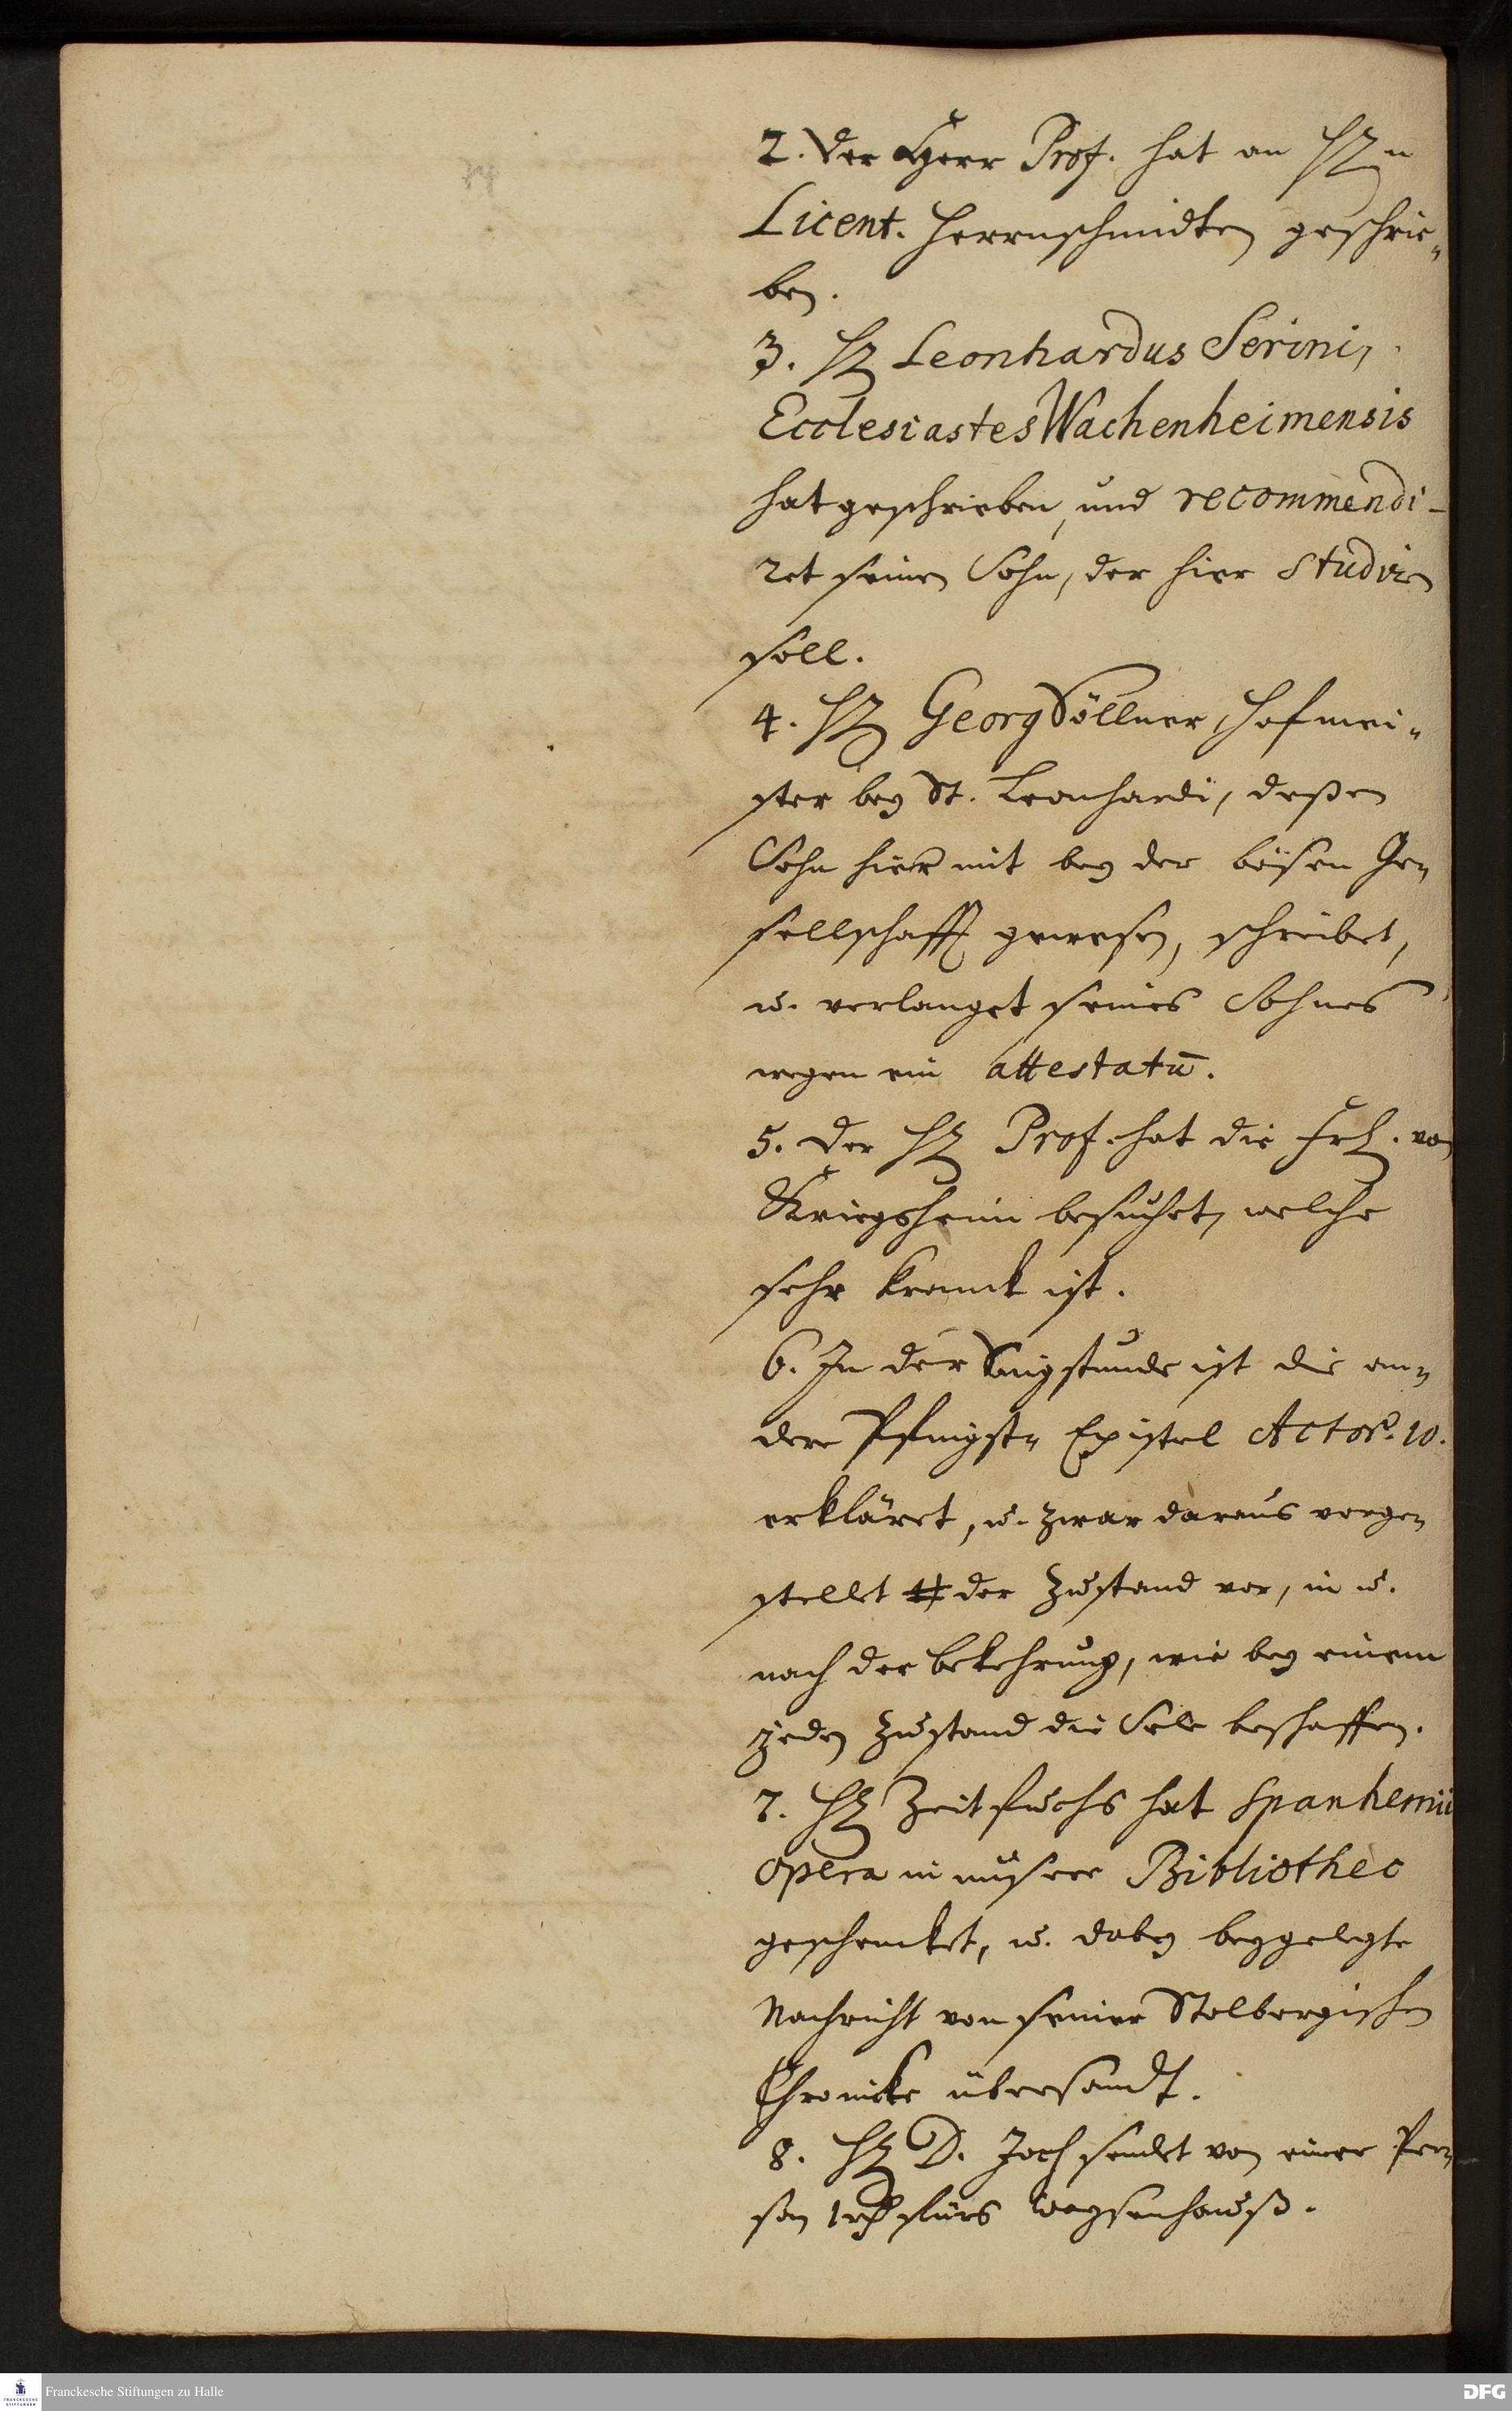 2. Der Herr Prof. hat an H.n
Licent. Herrnschmidten geschrie„
ben.
3. H. Leonhardus Serini,
Ecclesiastes Wachenheimensis
hat geschrieben, und recommendi-
ret seinen Sohn, der hier studiren
soll.
4. H. Georg Söllner, Hofmei„
ster bey St. Leonhardi, deßen
Sohn hier mit bey der bösen Ge„
sellschafft gewesen, schreibet,
u. verlanget seines Sohnes
wegen ein attestatū.
5. Der H. Prof. hat die Frl. von
Kriegsheim besuchet, welche
sehr kranck ist.
6. In der Singstunde ist die an„
dere Pfingst„ Epistel Actor. 10.
erkläret, u. zwar daraus vorge„
stellet der Zustand vor, in u.
nach der bekehrung, wie bey einem
jeden Zustand die Sele beschaffen.
7. H. Zeitfuchs hat Spanhemii
opera in unsere Bibliothec
geschencket, u. dabey beygelegte
Nachricht von seiner Stolbergischen
Chronicke übersandt.
8. H. D. Joch sendet von einer Per„
son 1 rth fürs Waysenhauß.
Franckesche Stiftungen zu Halle
FRANCKESCHE
STIFTUNGEN
DFG